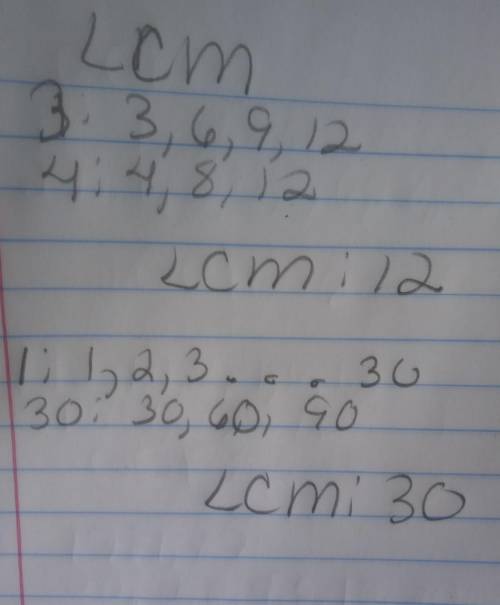 LCM
3: 3, 6, 9, 12
4: 4, 8, 12
LCM: 12
1: 1, 2, 3... 30
30: 30, 60, 90
LCM: 30